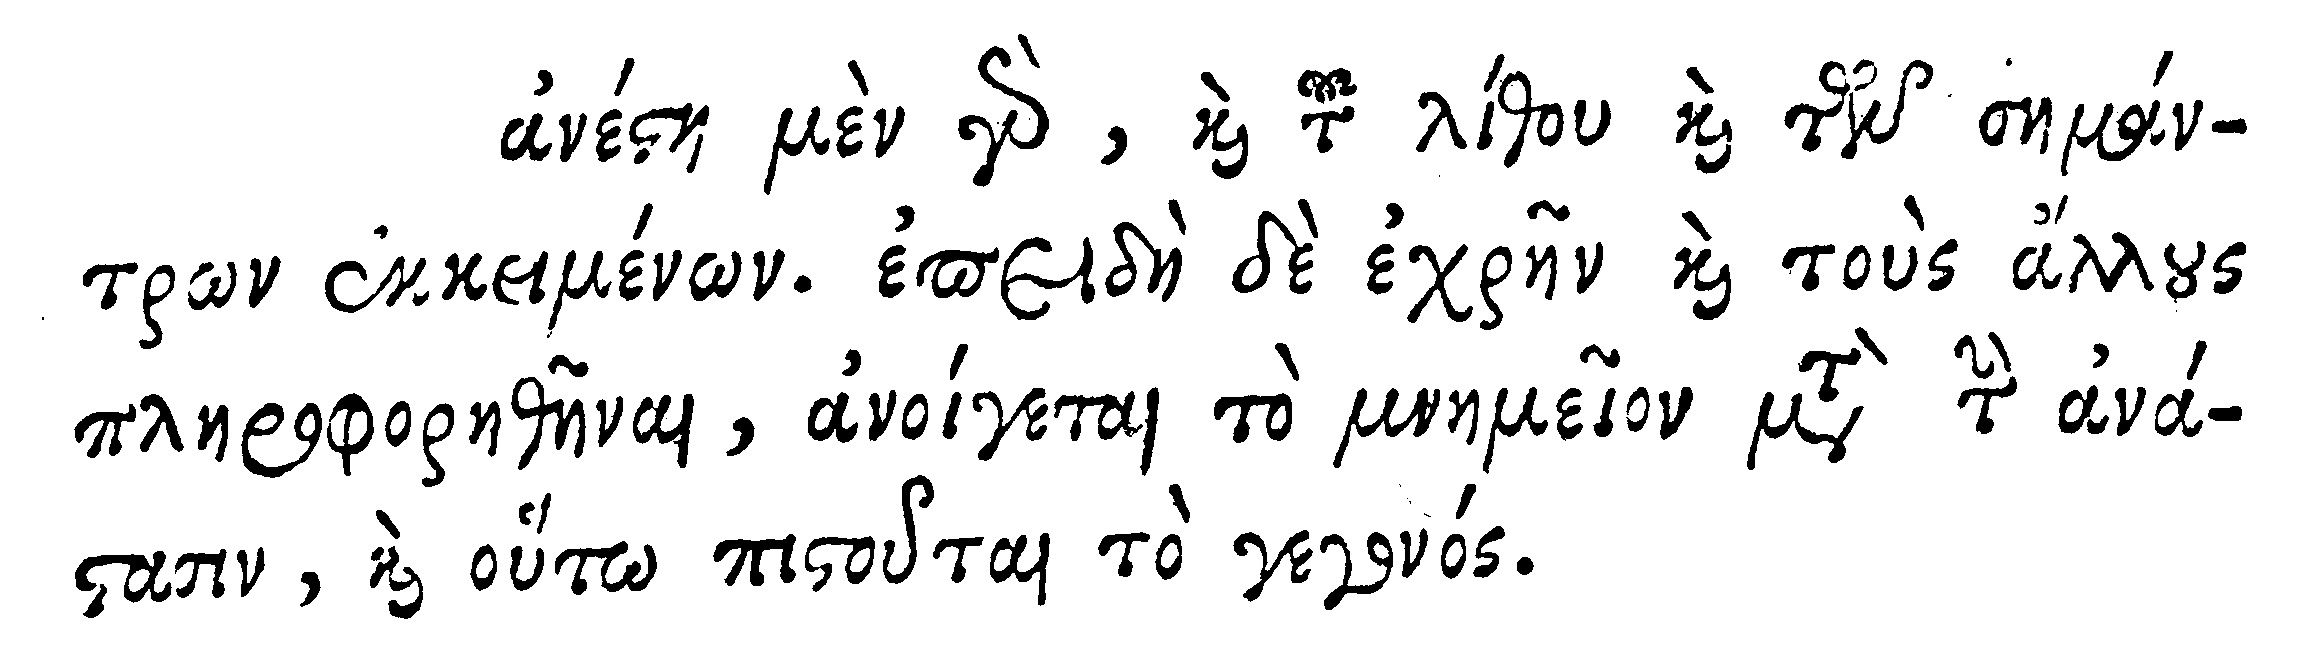 ἀνέστη μὲν γὰρ, καὶ τοῦ λίθου καὶ τῶν σημάν-
τρων ἐκκειμένων. ἐπειδὴ δὲ ἐχρῆν καὶ τοὺς ἄλλους
πληροφορηθῆναι, ἀνοίγεται τὸ μνημεῖον μετὰ τὴν ἀνά-
στασιν, καὶ οὕτω πιστοῦται τὸ γεγονός.